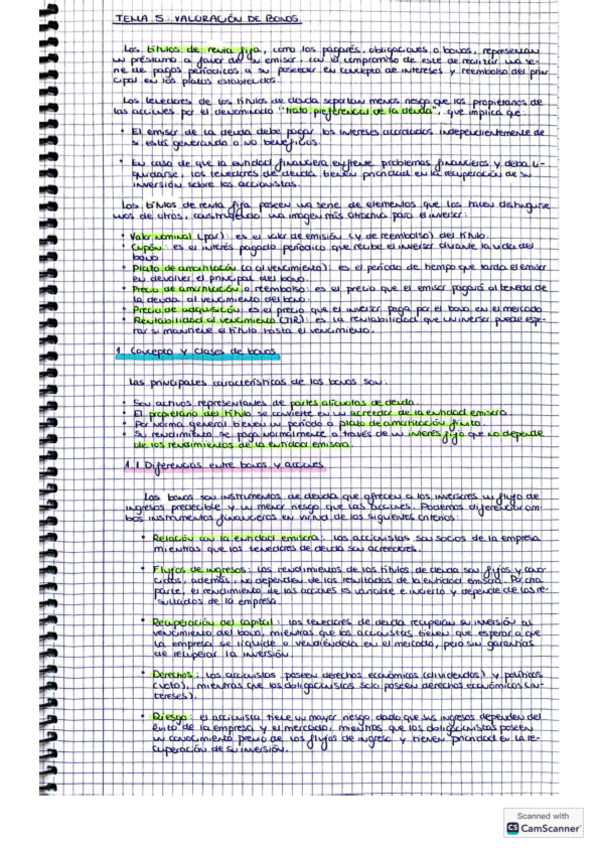 TEMA 5: VALORACIÓN DE BONOS.
Los títulos de renta fija, como los pagarés, obligaciones o bonos, representan
un préstamo a favor de su emisor, con el compromiso de este de realizar una se-
rie de pagos periódicos a su poseedor en concepto de intereses y reembolso del prin
cipal en los plazos establecidos.
Los tenedores de los títulos de deuda soportan menos riesgo que los propietarios de
las acciones por el denominado "trato preferencial de la deuda", que implica que:
• El emisor de la deuda debe pagar los intereses acordados independientemente de
si está generando o no beneficios.
• En caso de que la entidad financiera enfrente problemas financieros y deba li-
quidarse, los tenedores de deuda tienen prioridad en la recuperación de su
inversión sobre los accionistas.
Los títulos de renta fija poseen una serie de elementos que los hacen distinguirse
unos de otros, construyendo una imagen más atractiva para el inversor:
• Valor nominal (par): es el valor de emisión (y de reembolso) del título.
• Cupón: es el interés pagado periódico que recibe el inversor durante la vida del
bono.
• Plazo de amortización (o al vencimiento): es el periodo de tiempo que tarda el emisor
en devolver el principal del bono.
• Precio de amortización o reembolso: es el precio que el emisor pagará al tenedor de
la deuda al vencimiento del bono.
• Precio de adquisición: es el precio que el inversor paga por el bono en el mercado
• Rentabilidad al vencimiento (TIR): es la rentabilidad que un inversor puede espe-
rar si mantiene el título hasta el vencimiento.
1. Concepto y clases de bonos
Las principales características de los bonos son:
• Son activos representantes de partes alícuotas de deuda.
• El propietario del título se convierte en un acreedor de la entidad emisora.
• Por norma general tienen un periodo o plazo de amortización finito.
• Su rendimiento se paga normalmente a través de un interés fijo que no depende
de los rendimientos de la entidad emisora.
1.1 Diferencias entre bonos y acciones
Los bonos son instrumentos de deuda que ofrecen a los inversores un flujo de
ingresos predecible y un menor riesgo que las acciones. Podemos diferenciar am-
bos instrumentos financieros en virtud de los siguientes criterios:
• Relación con la entidad emisora: los accionistas son socios de la empresa
mientras que los tenedores de deuda son acreedores.
• Flujos de ingresos: los rendimientos de los títulos de deuda son fijos y cono-
cidos, además, no dependen de los resultados de la entidad emisora. Por otra
parte, el rendimiento de las acciones es variable e incierto y depende de los re-
sultados de la empresa.
• Recuperación del capital: los tenedores de deuda recuperan su inversión al
vencimiento del bono, mientras que los accionistas tienen que esperar a que
la empresa se liquide o vendiéndola en el mercado, pero sin garantías
de recuperar la inversión.
• Derechos: los accionistas poseen derechos económicos (dividendos) y políticos
(voto), mientras que los obligacionistas solo poseen derechos económicos (in-
tereses).
• Riesgo: el accionista tiene un mayor riesgo dado que sus ingresos dependen del
éxito de la empresa y el mercado, mientras que los obligacionistas poseen
un conocimiento previo de los flujos de ingreso y tienen prioridad en la re-
cuperación de su inversión.
Scanned with
CS CamScanner